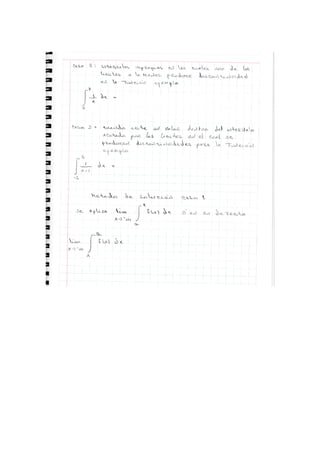 Caso 2: integrales impropias en las cuales uno de los
limites o lo limites producen discontinuidad
en la funcion ejemplo
∫ 1/x dx =
Caso 3: cuando existe un valor dentro del intervalo
acotado por los limites en el cual se
producen discontinuidades para la funcion
ejemplo
∫ 1/x-1 dx =
-2
Metodos de solucion caso 1
se aplica lim ∫ f(x) dx si es en derecha
x→∞
lim ∫ f(x) dx
x→-∞